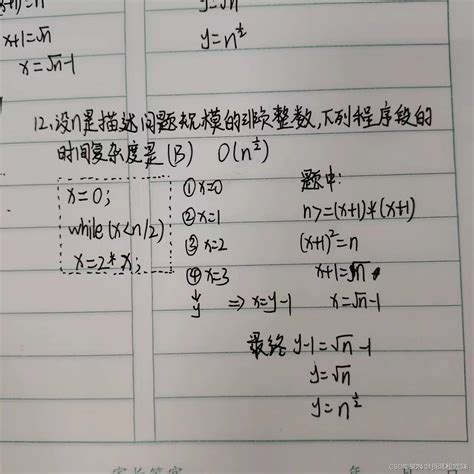 (x+1)=√n
x+1=√n
x=√n-1
y=√n
y=n^½
12.设n是描述问题规模的非负整数,下列程序段的
时间复杂度是(B) O(n^½)
x=0;
while(x<n/2)
x=2*x;
①x=0
②x=1
③x=2
④x=3
↓
y ⇒x=y-1
题中:
n>=(x+1)*(x+1)
(x+1)²=n
x+1=√n
x=√n-1
最终 y-1=√n-1
y=√n
y=n^½
家长签字 年 月 日